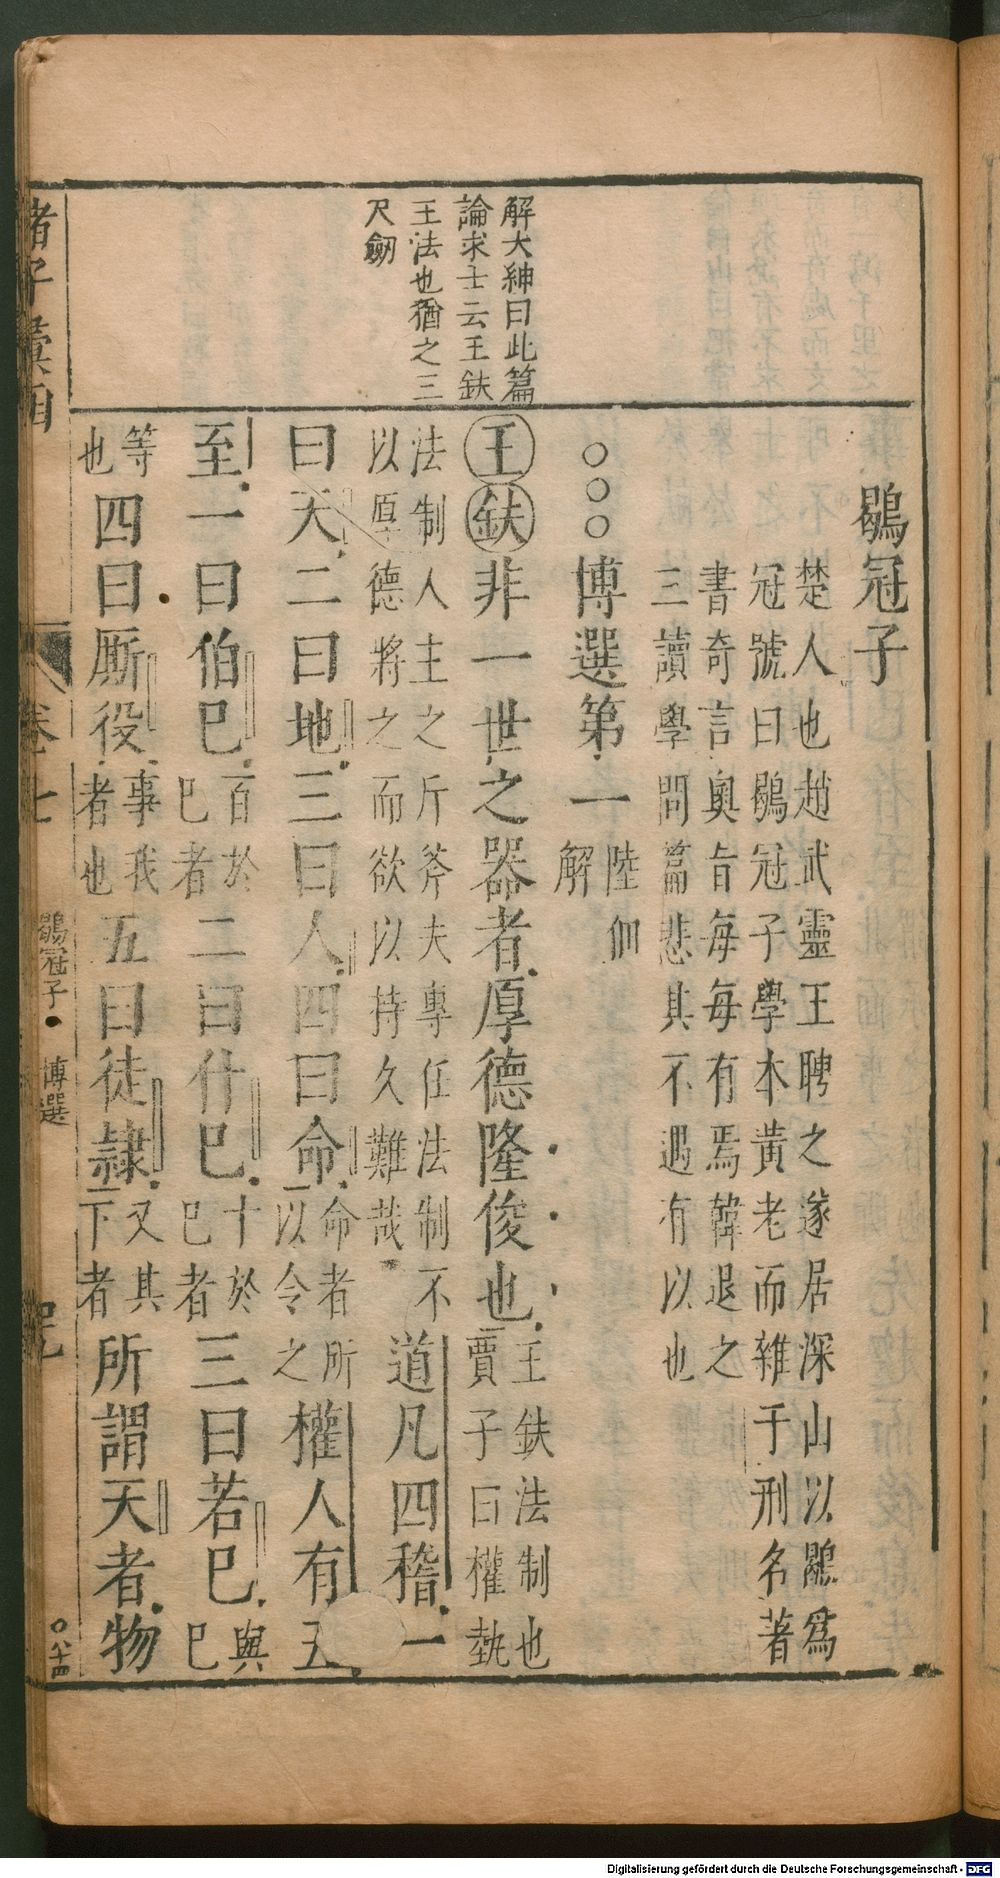 解大紳曰此篇
論求士云王鈇
王法也猶之三
尺劒
鶡冠子
楚人也趙武靈王聘之遂居深山以鶡爲
冠號曰鶡冠子學本黃老而雜于刑名著
書奇言奥旨每每有焉韓退之
三讀學問篇悲其不遇有以也
○○○博選第一
陸佃
解
王鈇非一世之器者厚德隆俊也
王鈇法制也
賈子曰權埶
法制人主之斤斧夫專任法制不
以厚德將之而欲以持久難哉
道凡四稽一
曰天二曰地三曰人四曰命
命者所
以令之
權人有五
至一曰伯巳
百於
巳者
二曰什巳
十於
巳者
三曰若巳
與
巳
等
也
四曰厮役
事我
者也
五曰徒隷
又其
下者
所謂天者物
諸子彙函
卷七
鶡冠子 博選
○八十四
Digitalisierung gefördert durch die Deutsche Forschungsgemeinschaft - DFG